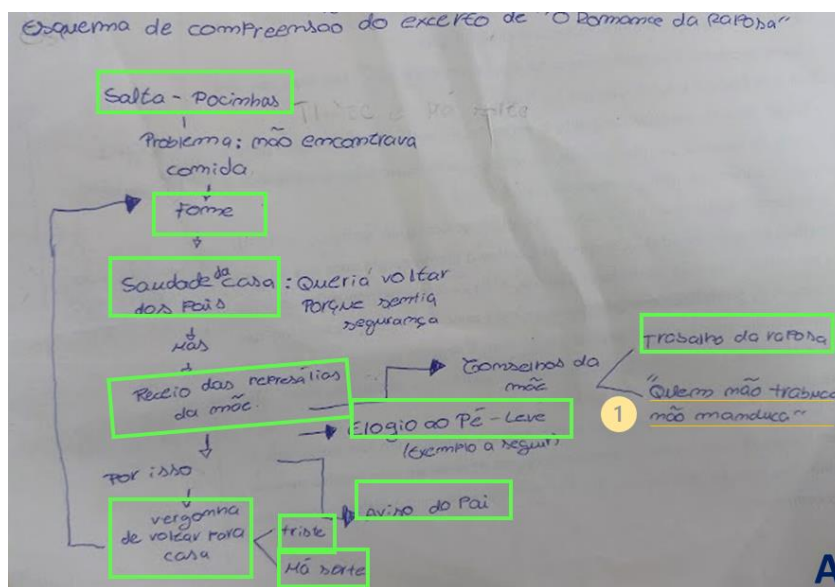 Esquema de compreensão do excerto de "O Romance da Raposa"
Salta - Pocinhas
Problema: não encontrava
comida
Fome
Saudade da casa : Queria voltar
dos Pais
Porque sentia
segurança
Mas
Receio das represálias
da mãe.
Conselhos da
mãe
Trabalho da raposa
"Quem não trabuca
não manduca"
1
Elogio ao Pé - Leve
(exemplo a seguir)
Por isso
vergonha
de voltar para
casa
triste
Má sorte
Aviso do Pai
A